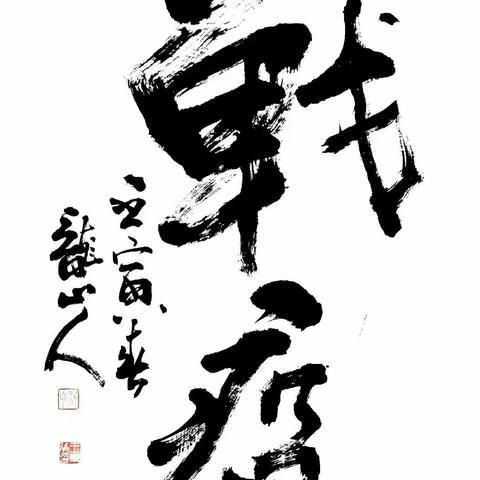 戰疫
壬寅春
龍山人